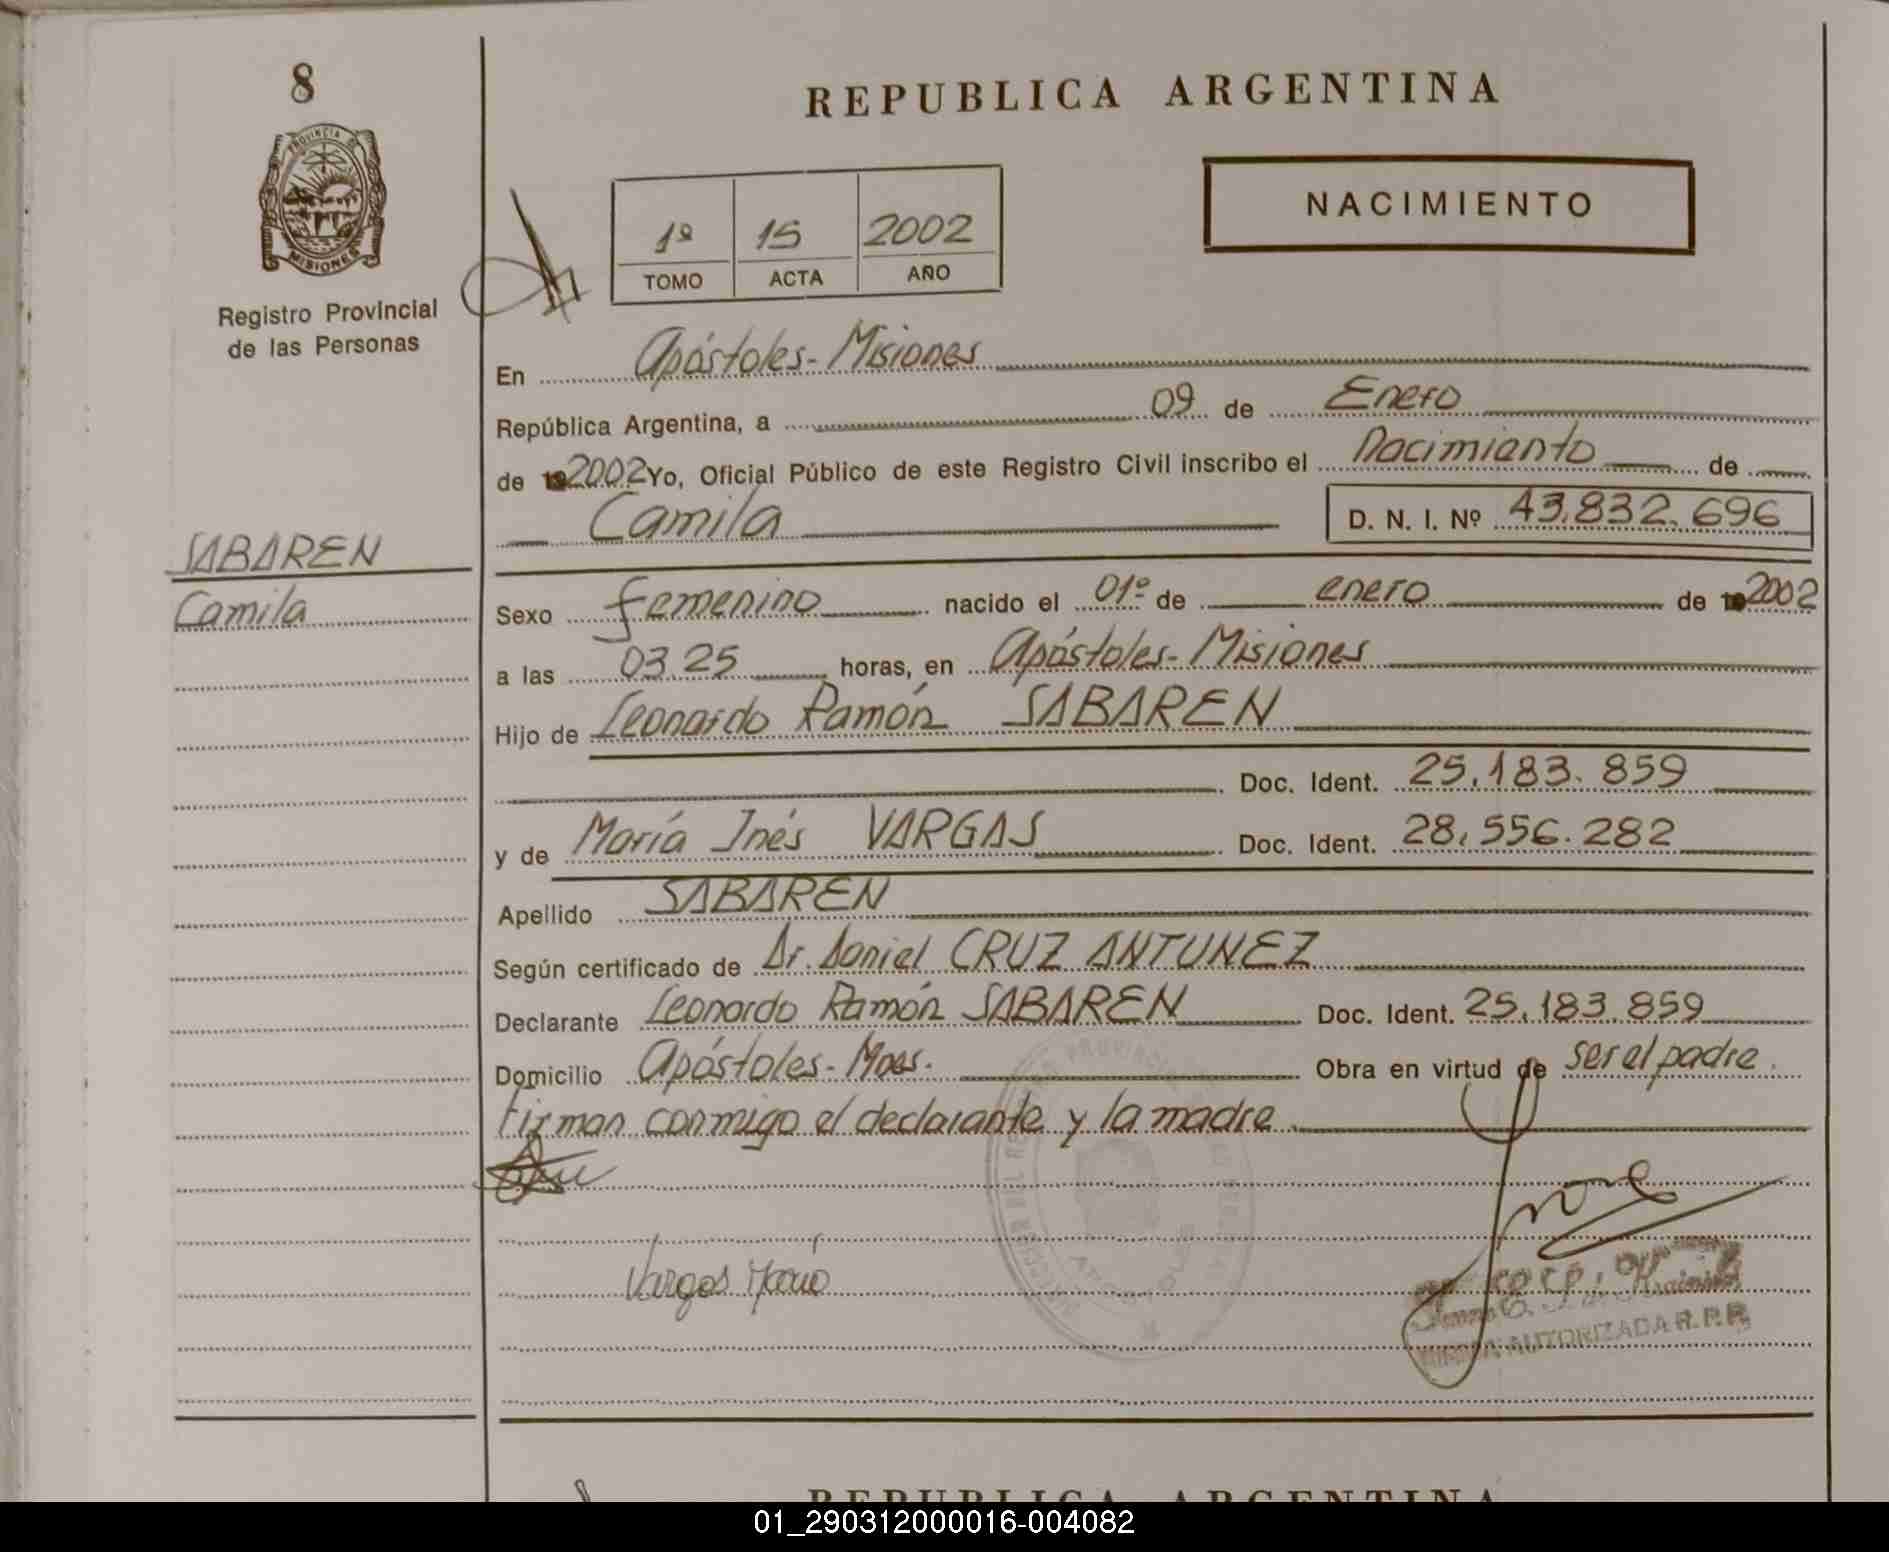 8
PROVINCIA DE
MISIONES
Registro Provincial
de las Personas
SABAREN
Camila
REPUBLICA ARGENTINA
NACIMIENTO
1º 15 2002
TOMO ACTA AÑO
En Apóstoles - Misiones
República Argentina, a 09 de Enero
de 192002 Yo, Oficial Público de este Registro Civil inscribo el Nacimiento de
Camila D. N. I. Nº 43.832.696
Sexo femenino nacido el 01º de enero de 192002
a las 03.25 horas, en Apóstoles - Misiones
Hijo de Leonardo Ramón SABAREN
Doc. Ident. 25.183.859
y de María Inés VARGAS Doc. Ident. 28.556.282
Apellido SABAREN
Según certificado de Dr. Daniel CRUZ ANTUNEZ
Declarante Leonardo Ramón SABAREN Doc. Ident. 25.183.859
Domicilio Apóstoles - Mnes. Obra en virtud de ser el padre.
Firman conmigo el declarante y la madre
Vargas María
APOSTOLES
FIRMA AUTORIZADA R.P.P.
REPUBLICA ARGENTINA
01_290312000016-004082